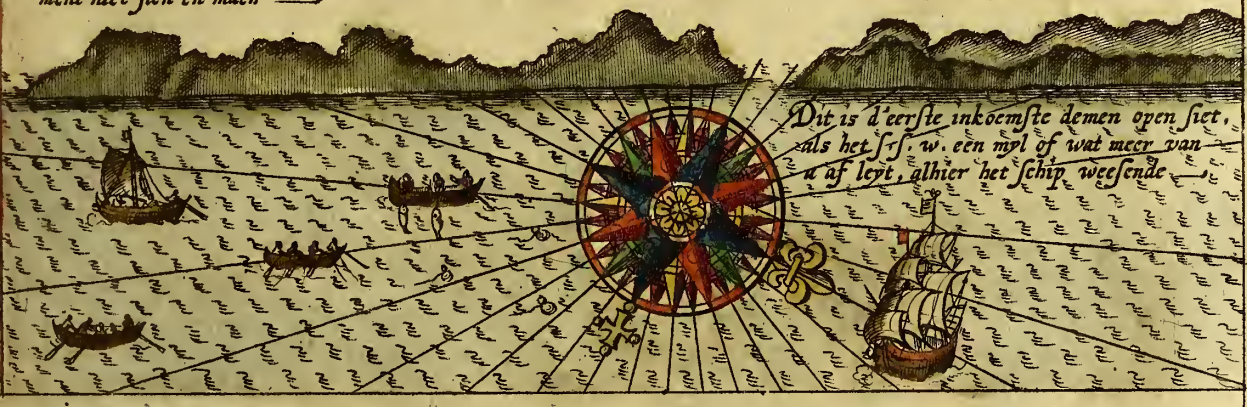 ment niet sien en mach
Dit is d'eerste inkoemste demen open siet,
als het s.s. w. een myl of wat meer van
u af leyt, alhier het schip weesende